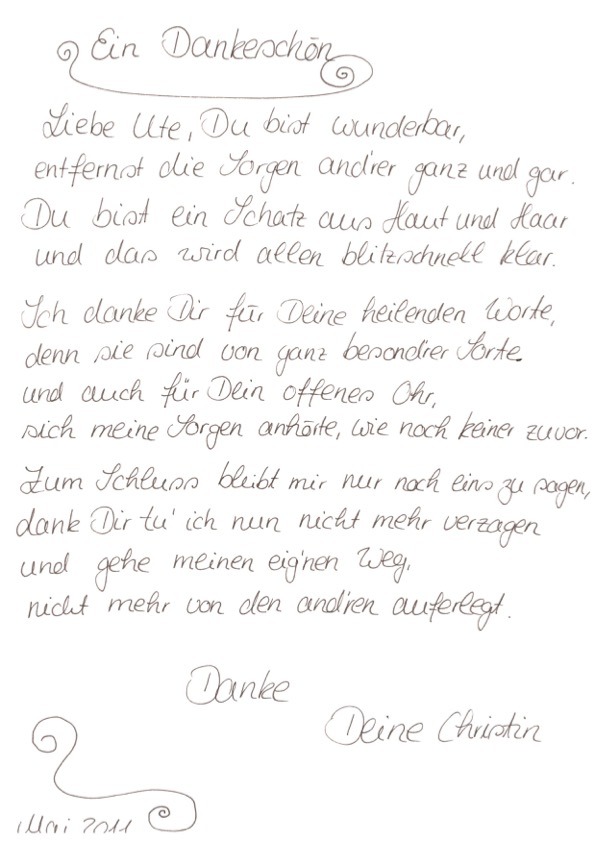 Ein Dankeschön
Liebe Ute, Du bist wunderbar,
entfernst die Sorgen and'rer ganz und gar.
Du bist ein Schatz aus Haut und Haar
und das wird allen blitzschnell klar.
Ich danke Dir für Deine heilenden Worte,
denn sie sind von ganz besond'rer Sorte
und auch für Dein offenes Ohr,
sich meine Sorgen anhörte, wie noch keiner zuvor.
Zum Schluss bleibt mir nur noch eins zu sagen,
dank Dir tu' ich nun nicht mehr verzagen
und gehe meinen eig'nen Weg,
nicht mehr von den and'ren auferlegt.
Danke
Deine Christin
Mai 2011